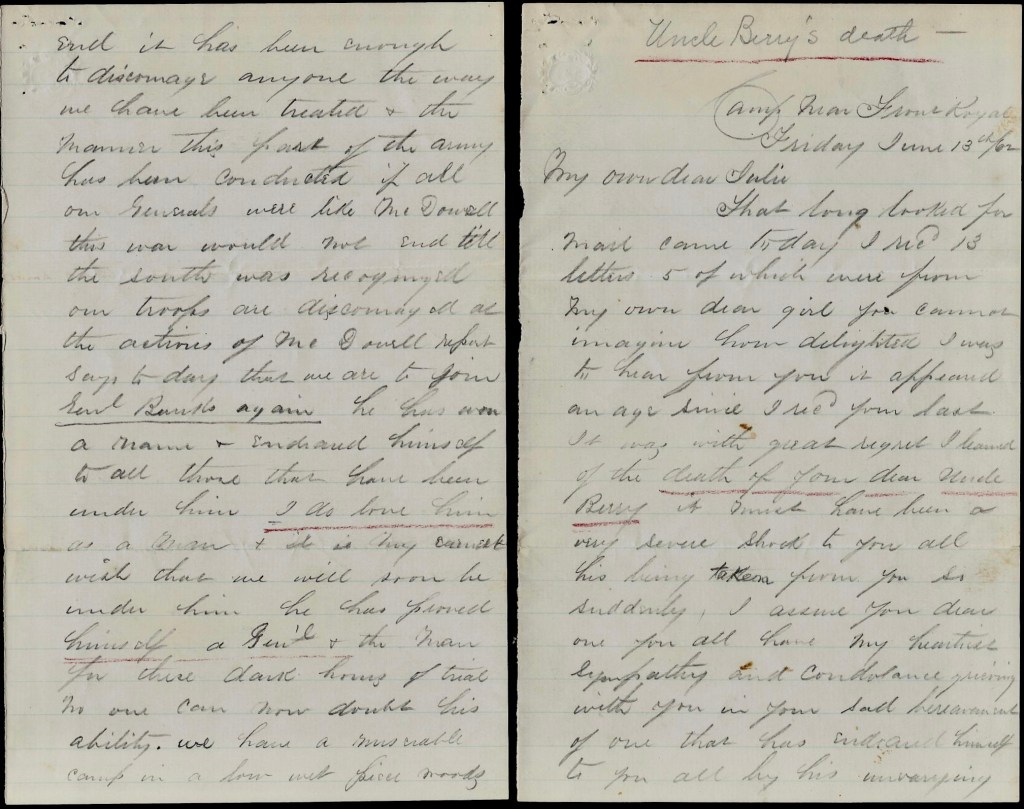 end it has been enough
to discourage anyone the way
we have been treated & the
manner this part of the army
has been conducted if all
our Generals were like McDowell
this war would not end till
the south was recognized
our troops are discouraged at
the actions of McDowell report
says to day that we are to join
Genl Banks again he has won
a name & endeared himself
to all those that have been
under him I do love him
as a man & it is my earnest
wish that we will soon be
under him he has proved
himself a Gen'l & the man
for these dark hours of trial
No one can now doubt his
ability. we have a miserable
camp in a low wet piece woods
Uncle Berry's death —
Camp Near Front Royal
Friday June 13th/62
My own dear Julie
That long looked for
Mail came to day I rec'd 13
letters 5 of which were from
my own dear girl you cannot
imagine how delighted I was
to hear from you it appeared
an age since I rec'd your last.
It was with great regret I learned
of the death of your dear Uncle
Berry it must have been a
very severe shock to you all
his being taken from you so
suddenly, I assure you dear
one you all have my heartiest
sympathy and condolance grieving
with you in your sad bereavement
of one that has endeared himself
to you all by his unvarying